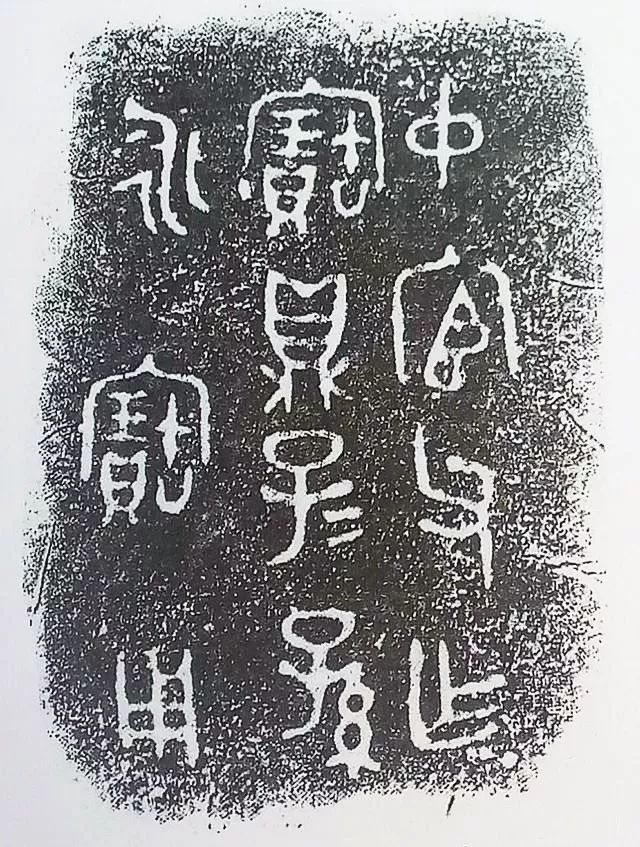 中宦父乍
寶鼎子=孫
永寶用